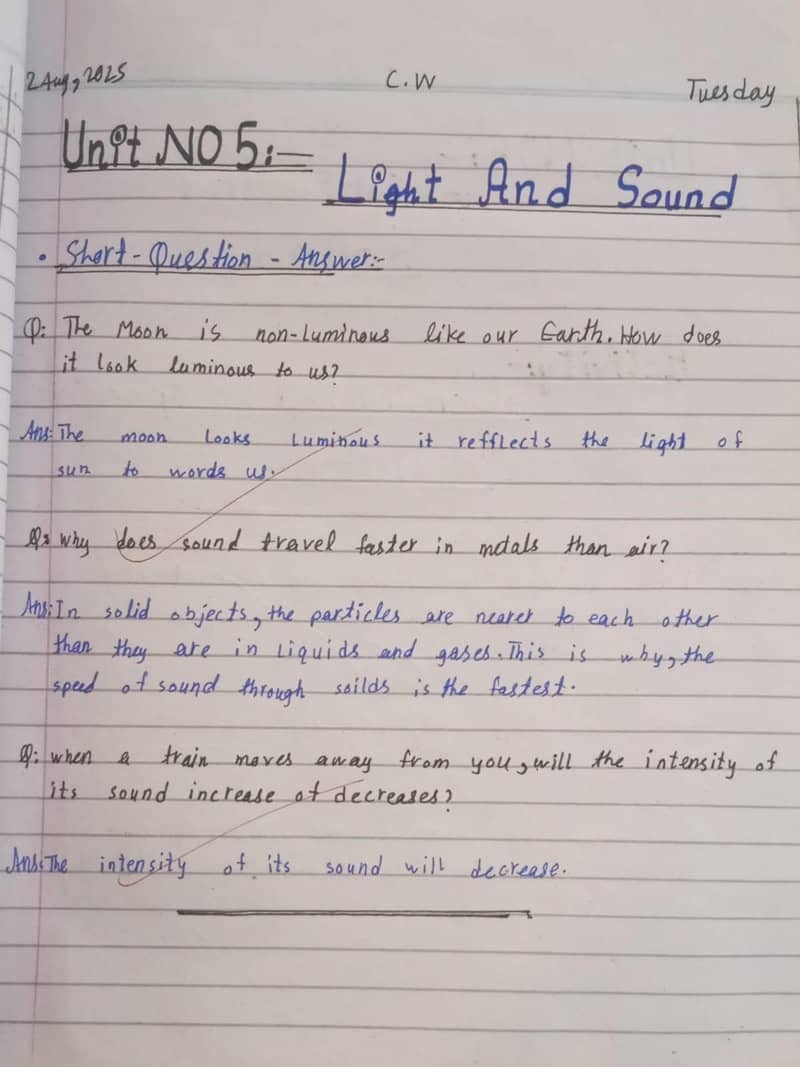 2 Aug, 2025 C.W Tuesday
Unit NO 5:-
Light And Sound
• Short-Question-Answer:-
Q: The Moon is non-Luminous like our Earth. How does
it look luminous to us?
Ans: The moon Looks Luminous it refflects the light of
sun to words us.
Q: why does sound travel faster in metals than air?
Ans: In solid objects, the particles are nearer to each other
than they are in Liquids and gases. This is why, the
speed of sound through soilds is the fastest.
Q: when a train moves away from you, will the intensity of
its sound increase of decreases?
Ans: The intensity of its sound will decrease.